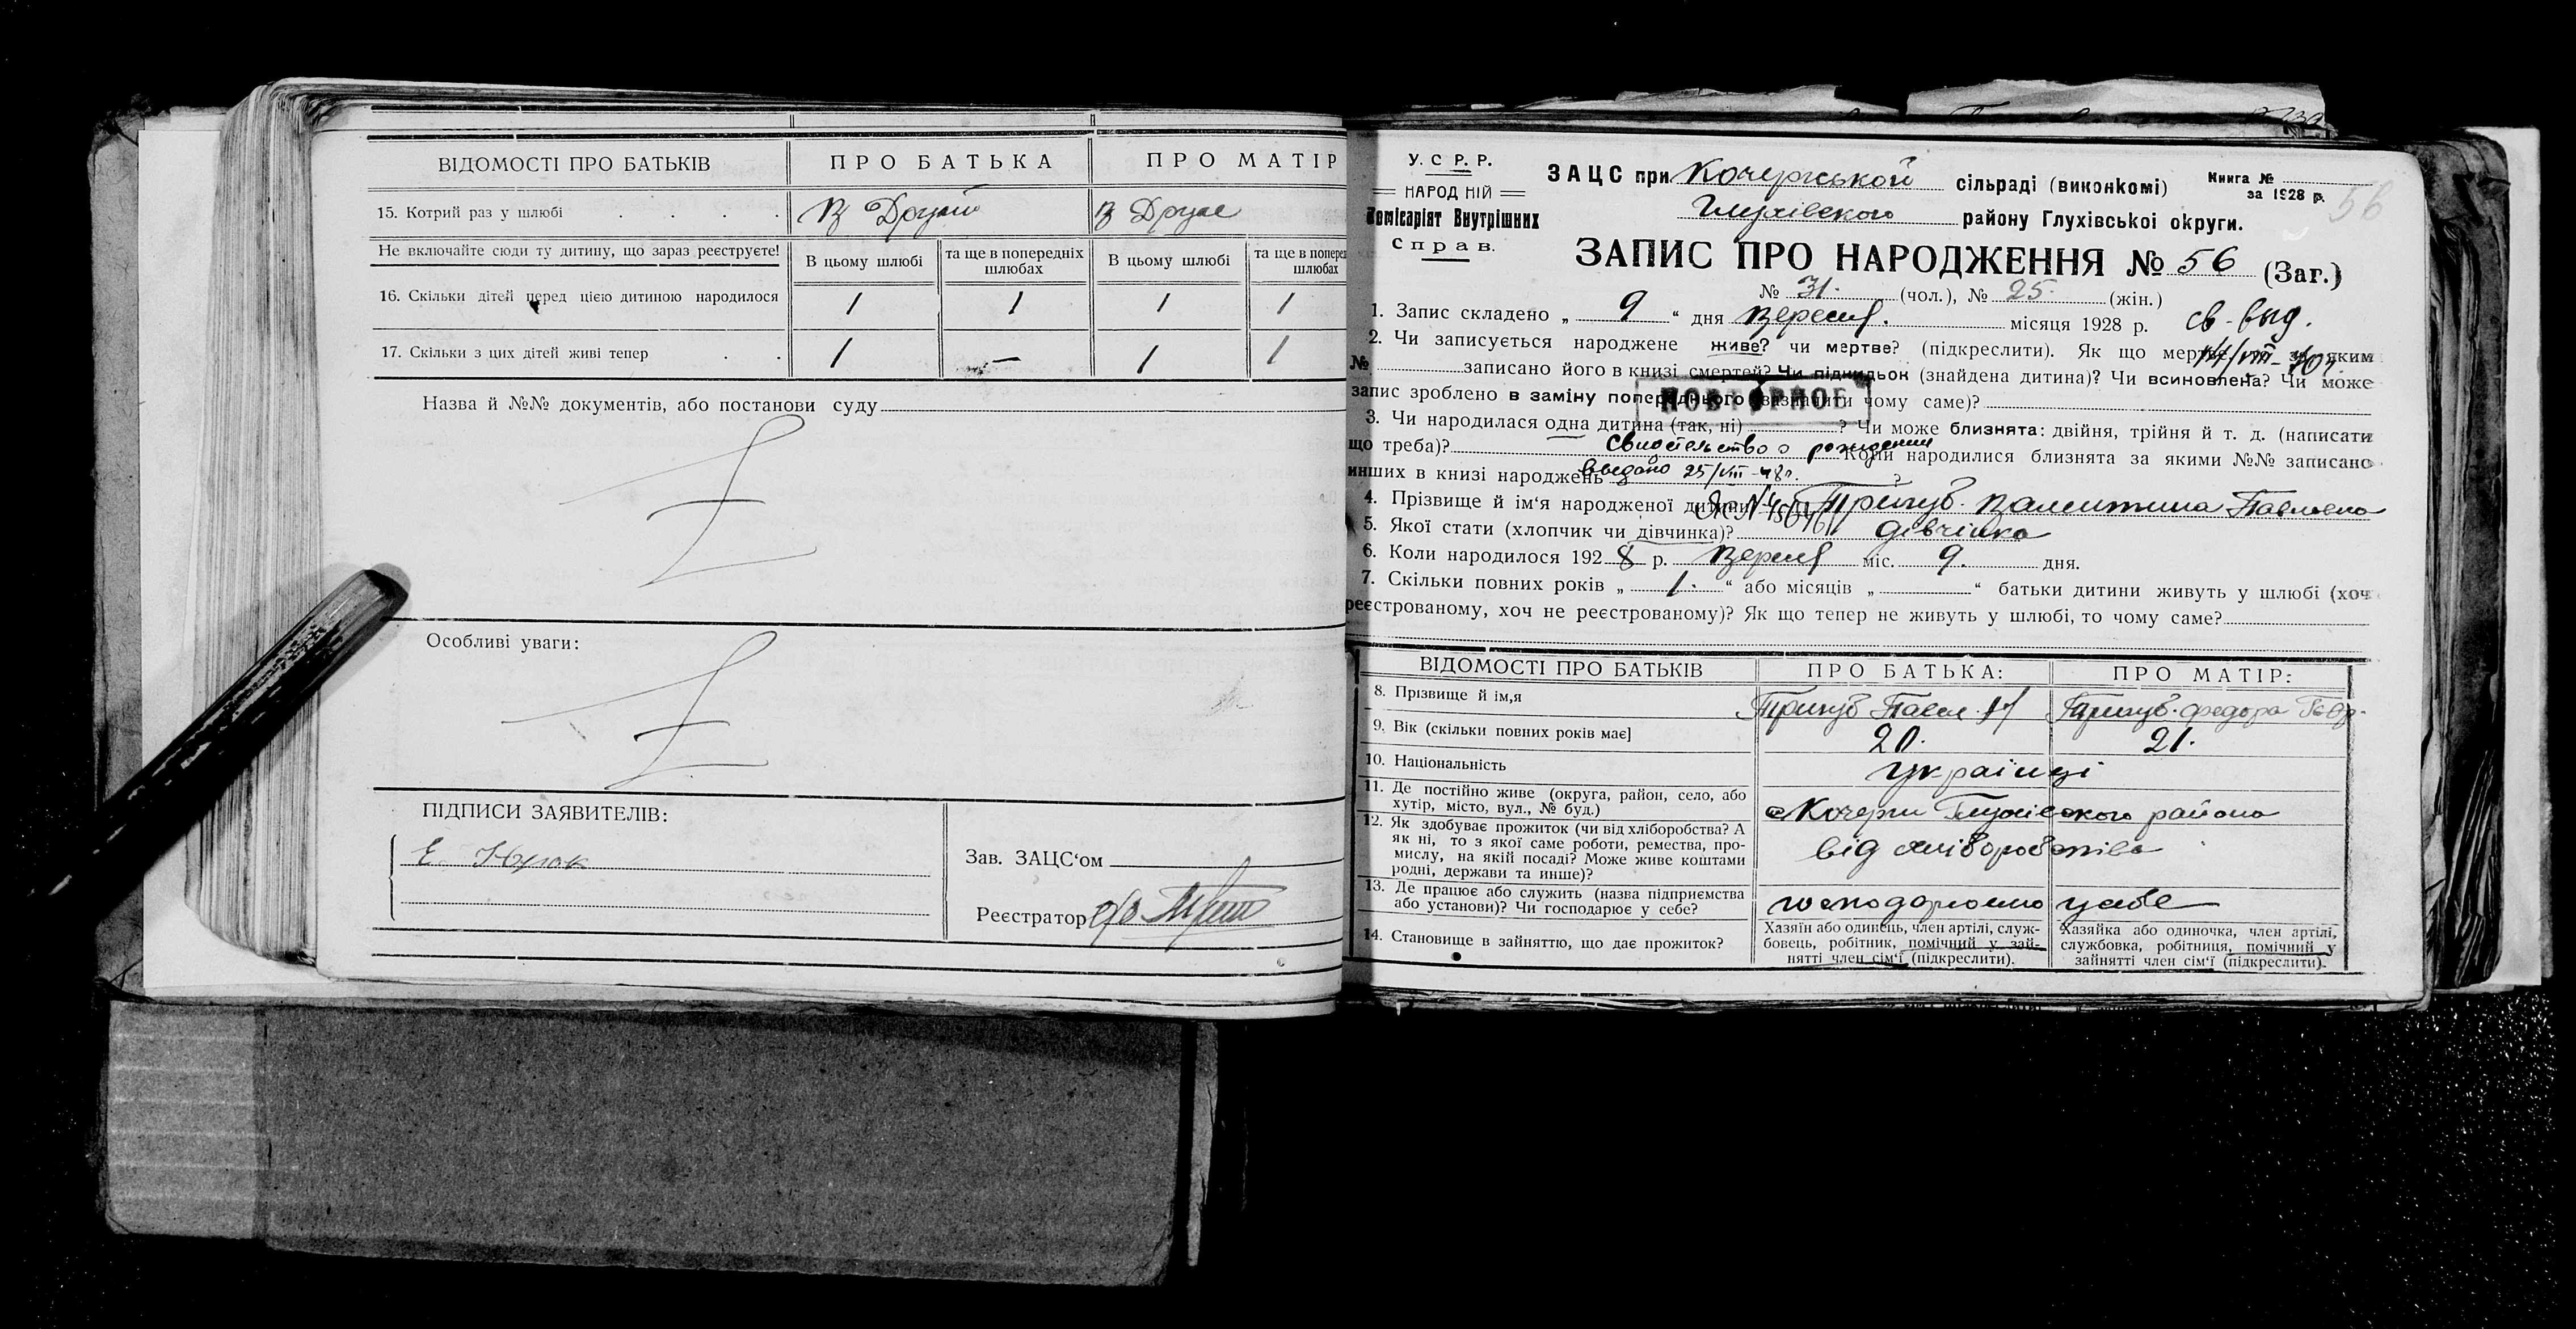 ВІДОМОСТІ ПРО БАТЬКІВ ПРО БАТЬКА ПРО МАТІР
15. Котрий раз у шлюбі В Другий В Друге
Не включайте сюди ту дитину, що зараз реєструєте! В цьому шлюбі та ще в попередніх шлюбах В цьому шлюбі та ще в попере шлюбах
16. Скільки дітей перед цією дитиною народилося 1 1 1 1
17. Скільки з цих дітей живі тепер 1 — 1 1
Назва й №№ документів, або постанови суду
Особливі уваги:
ПІДПИСИ ЗАЯВИТЕЛІВ:
Е.
Зав. ЗАЦС'ом
Реєстратор
У. С Р. Р.
НАРОДНІЙ
Комісаріят Внутрішних
Справ.
ЗАЦС при Кочергській сільраді (виконкомі) Книга №
за 1928 р.
56
Глухівского району Глухівської округи.
ЗАПИС ПРО НАРОДЖЕННЯ № 56 (Заг.)
№ 31. (чол.), № 25. (жін.)
1. Запис складено „ 9 “ дня Вересня. місяця 1928 р. св-выд.
14/VIII-
2. Чи записується народжене живе? чи мертве? (підкреслити). Як що мертве за яким
№ записано його в книзі смертей? Чи підкидьок (знайдена дитина)? Чи всиновлена? Чи може
запис зроблено в заміну попереднього (зазначити чому саме)?
ПОВТОРНОЕ
3. Чи народилася одна дитина (так, ні) ? Чи може близнята: двійня, трійня й т. д. (написати
що треба)? Свидетельство о рождении Коли народилися близнята за якими №№ записано
инших в книзі народжень выдано 25/VIII-48г. ?
4. Прізвище й ім'я народженої дитини Тригуб Валентина Павловна
5. Якої стати (хлопчик чи дівчинка)? дівчінка
6. Коли народилося 1928 р. Вересня міс. 9. дня.
7. Скільки повних років „ 1. “ або місяців „ “ батьки дитини живуть у шлюбі (хоч
реєстрованому, хоч не реєстрованому)? Як що тепер не живуть у шлюбі, то чому саме?
ВІДОМОСТІ ПРО БАТЬКІВ ПРО БАТЬКА: ПРО МАТІР:
8. Прізвище й ім,я Тригуб Павел Тригуб Федора
9. Вік (скільки повних років має] 20. 21.
10. Національність українці
11. Де постійно живе (округа, район, село, або
хутір, місто, вул., № буд.) с Кочерги Глухівского района
12. Як здобуває прожиток (чи від хліборобства? А
як ні, то з якої саме роботи, ремества, про-
мислу, на якій посаді? Може живе коштами
родні, держави та инше)? від хліборобства
13. Де працює або служить (назва підприємства
або установи)? Чи господарює у себе? господарюют у себе
14. Становище в зайняттю, що дає прожиток?
Хазяїн або одинець, член артілі, служ-
бовець, робітник, помічний у зай-
нятті член сім'ї (підкреслити).
Хазяйка або одиночка, член артілі,
службовка, робітниця, помічний у
зайнятті член сім'ї (підкреслити).